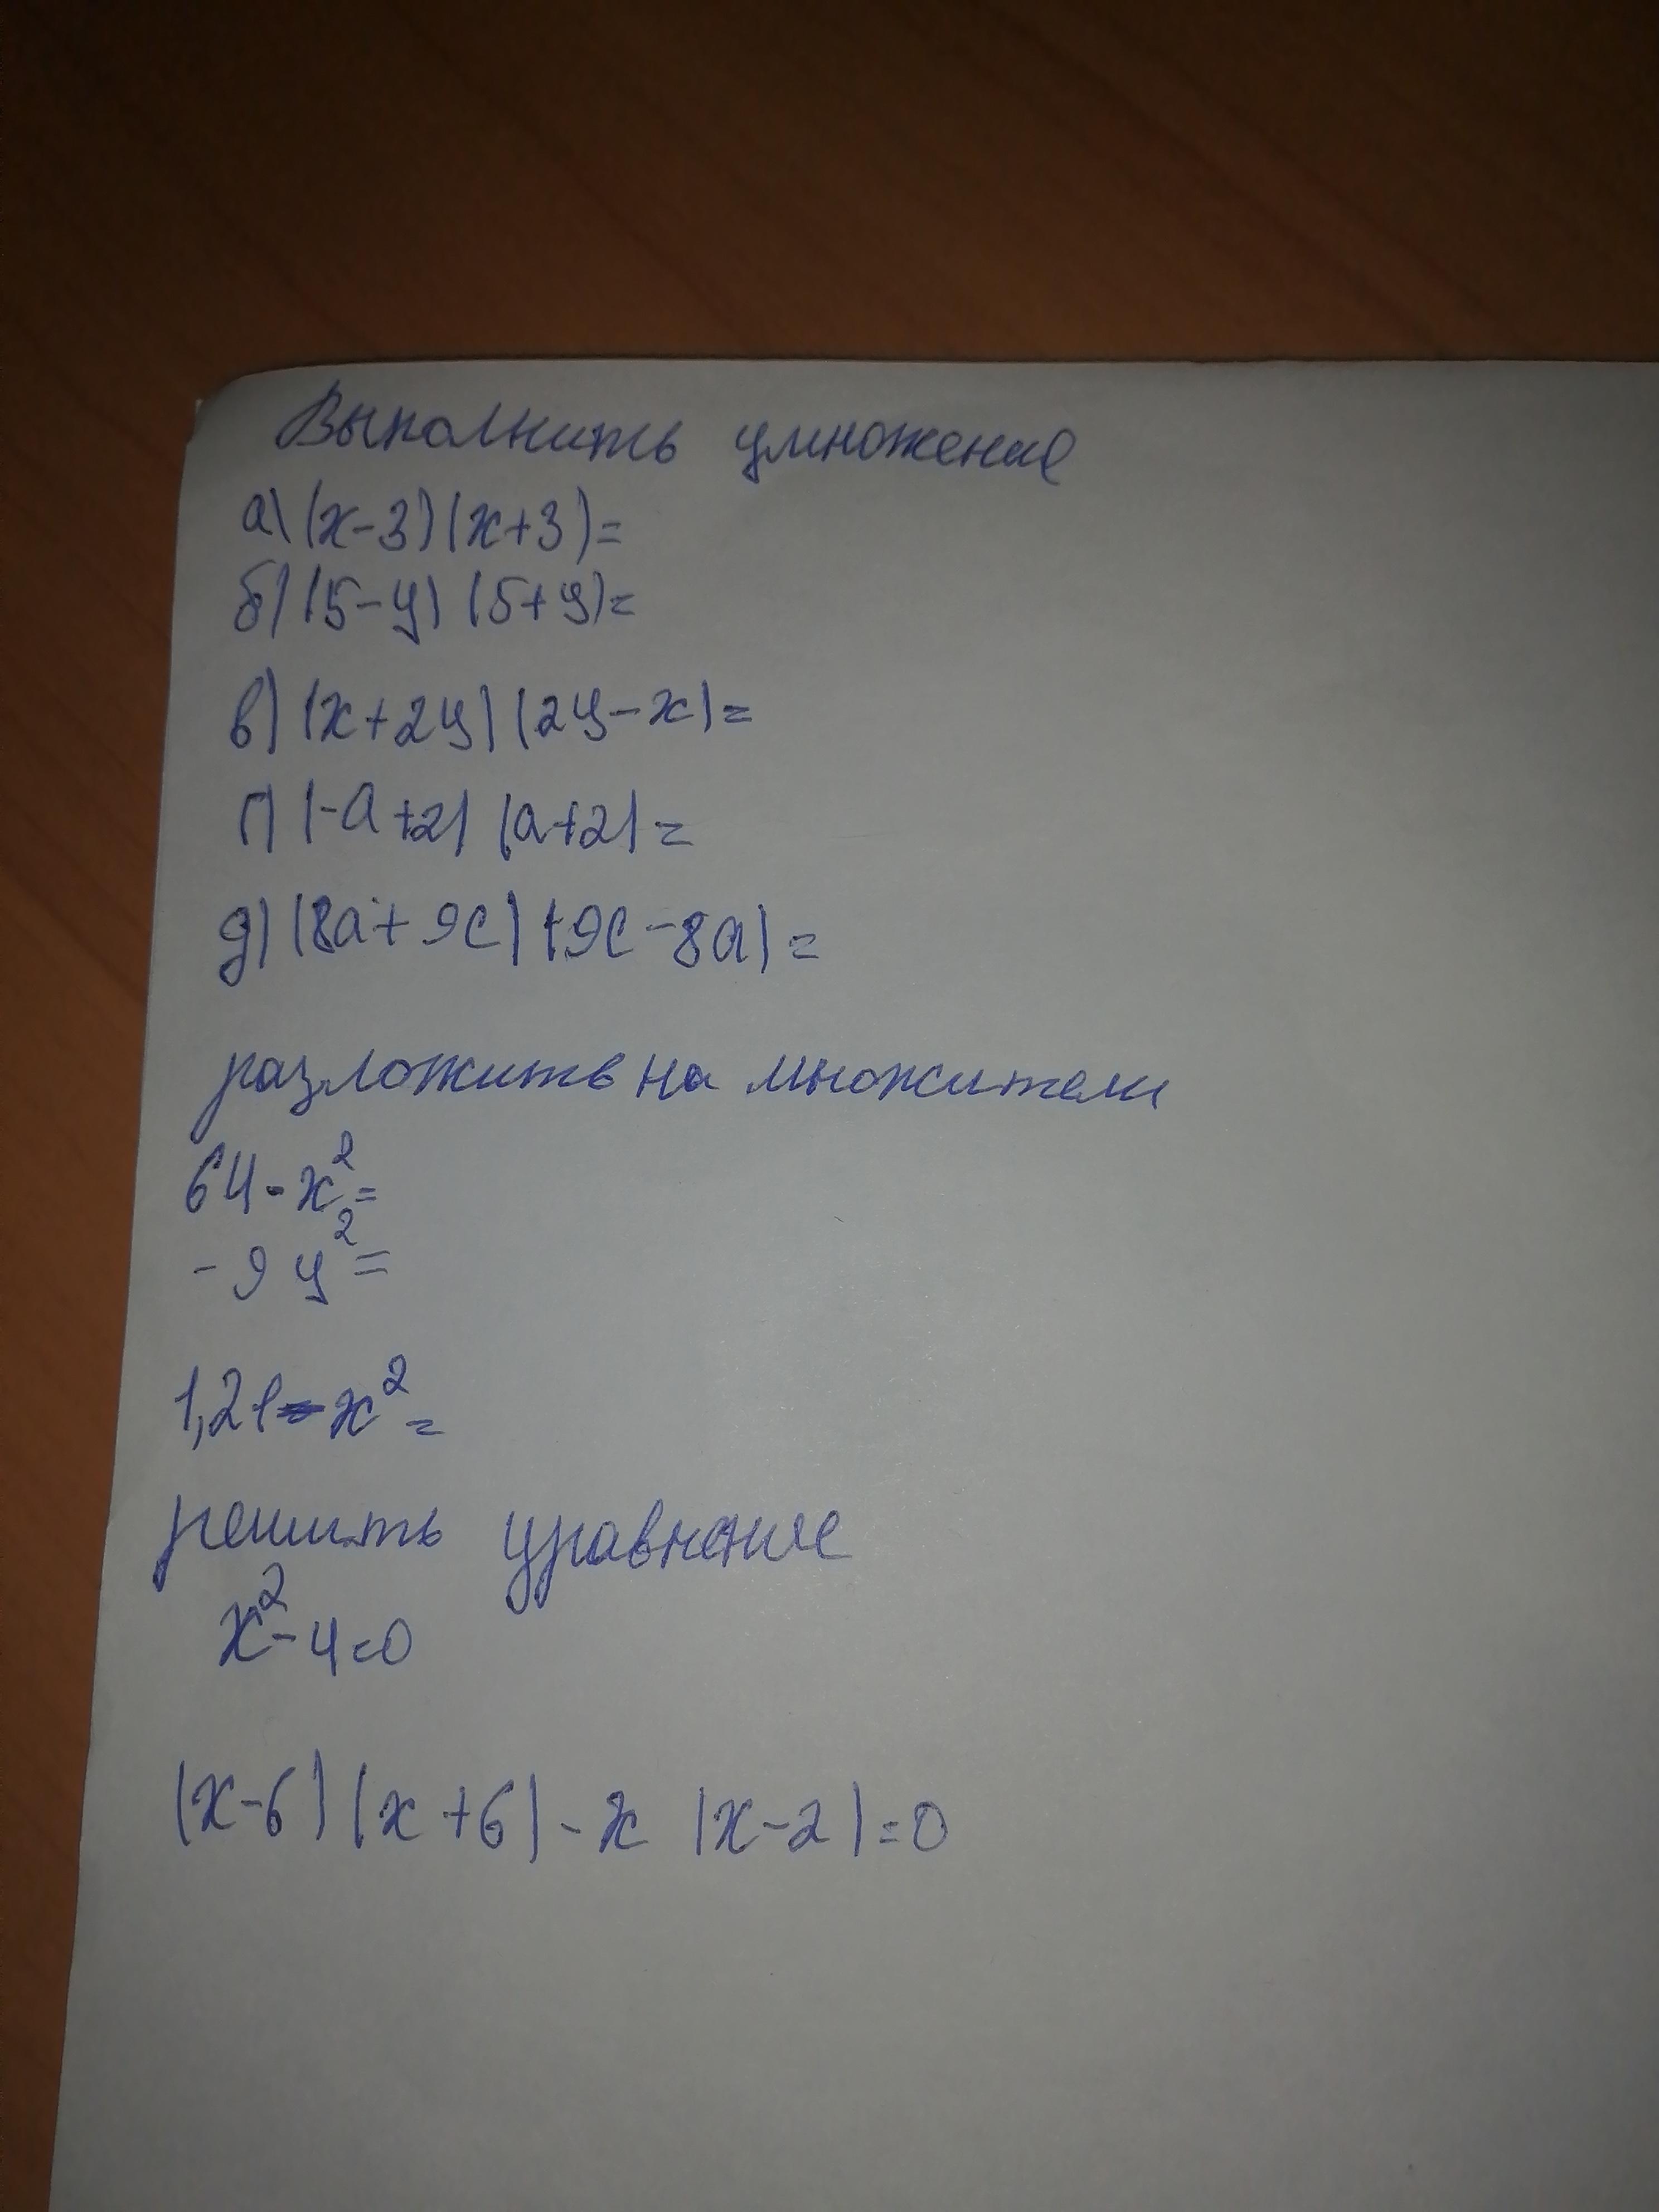 Выполнить умножение
а) (x-3)(x+3)=
б) (5-y) (5+y)=
в) (x+2y) (2y-x)=
г) (-a+2) (a+2)=
д) (8a+9c) (9c-8a)=
разложить на множители
64-x²=
-9y²=
1,21-x²=
решить уравнение
x²-4=0
(x-6) (x+6)-x (x-2)=0